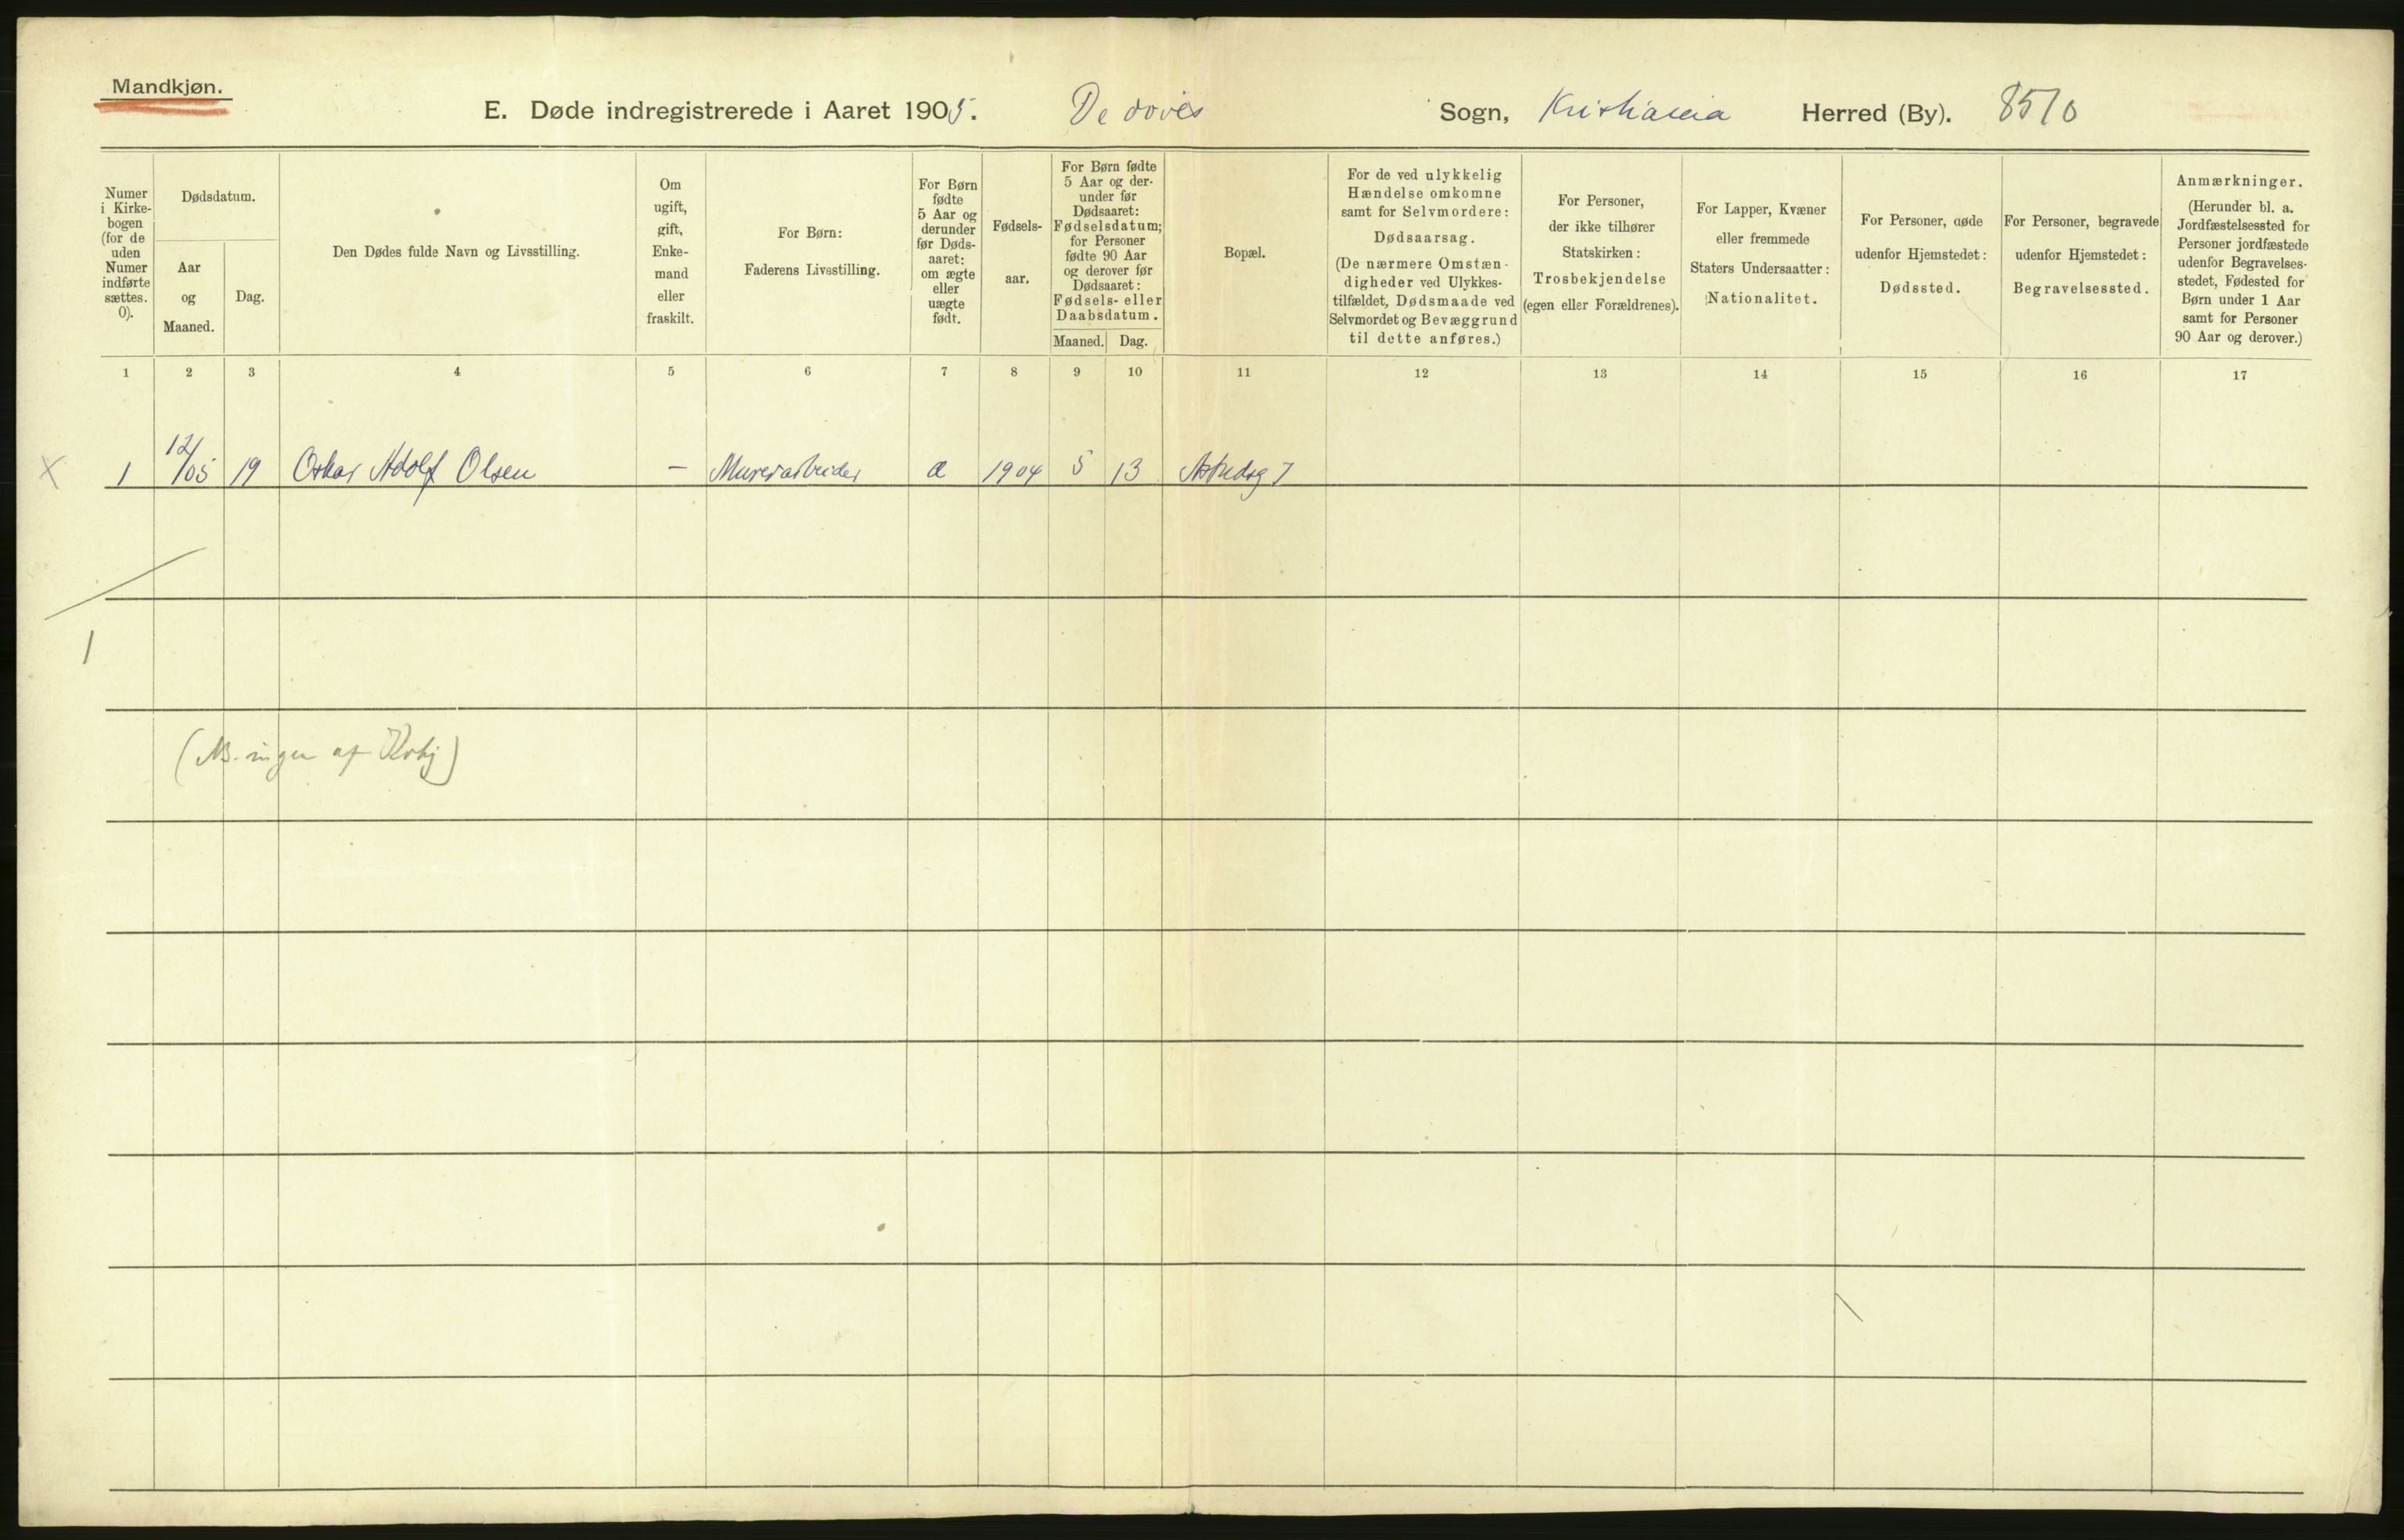 Mandkjøn.
E. Døde indregistrerede i Aaret 1905. De døves Sogn, Kristiania Herred (By). 8510
Numer
i Kirke-
bogen
(for de
uden
Numer
indførte
sættes.
0).
Dødsdatum.
Aar
og
Maaned.
Dag.
Den Dødes fulde Navn og Livsstilling.
Om
ugift,
gift,
Enke-
mand
eller
fraskilt.
For Børn:
Faderens Livsstilling.
For Børn
fødte
5 Aar og
derunder
før Døds-
aaret:
om ægte
eller
uægte
født.
Fødsels-
aar.
For Børn fødte
5 Aar og der-
under før
Dødsaaret:
Fødselsdatum;
for Personer
fødte 90 Aar
og derover før
Dødsaaret:
Fødsels- eller
Daabsdatum.
Maaned. Dag.
Bopæl.
For de ved ulykkelig
Hændelse omkomne
samt for Selvmordere:
Dødsaarsag.
(De nærmere Omstæn-
digheder ved Ulykkes-
tilfældet, Dødsmaade ved
Selvmordet og Bevæggrund
til dette anføres.)
For Personer,
der ikke tilhører
Statskirken:
Trosbekjendelse
(egen eller Forældrenes).
For Lapper, Kvæner
eller fremmede
Staters Undersaatter:
Nationalitet.
For Personer, døde
udenfor Hjemstedet:
Dødssted.
For Personer, begravede
udenfor Hjemstedet:
Begravelsessted.
Anmærkninger.
(Herunder bl. a.
Jordfæstelsessted for
Personer jordfæstede
udenfor Begravelses-
stedet, Fødested for
Børn under 1 Aar
samt for Personer
90 Aar og derover.)
1 2 3 4 5 6 7 8 9 10 11 12 13 14 15 16 17
x 1 12/05 19 Oskar Adolf Olsen - Murerarbeider æ 1904 5 13 Astridsg 7
1
(NB. ingen af